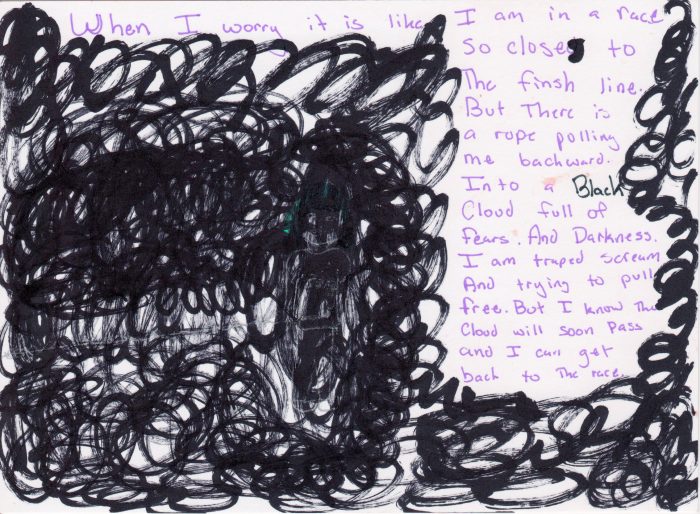 When I worry it is like
I am in a race
So close to
The finsh line.
But There is
a rope polling
me backward.
Into a Black
Cloud full of
fears. And Darkness.
I am traped scream
And trying to pull
free. But I know The
Cloud will soon Pass
and I can get
back to The race.